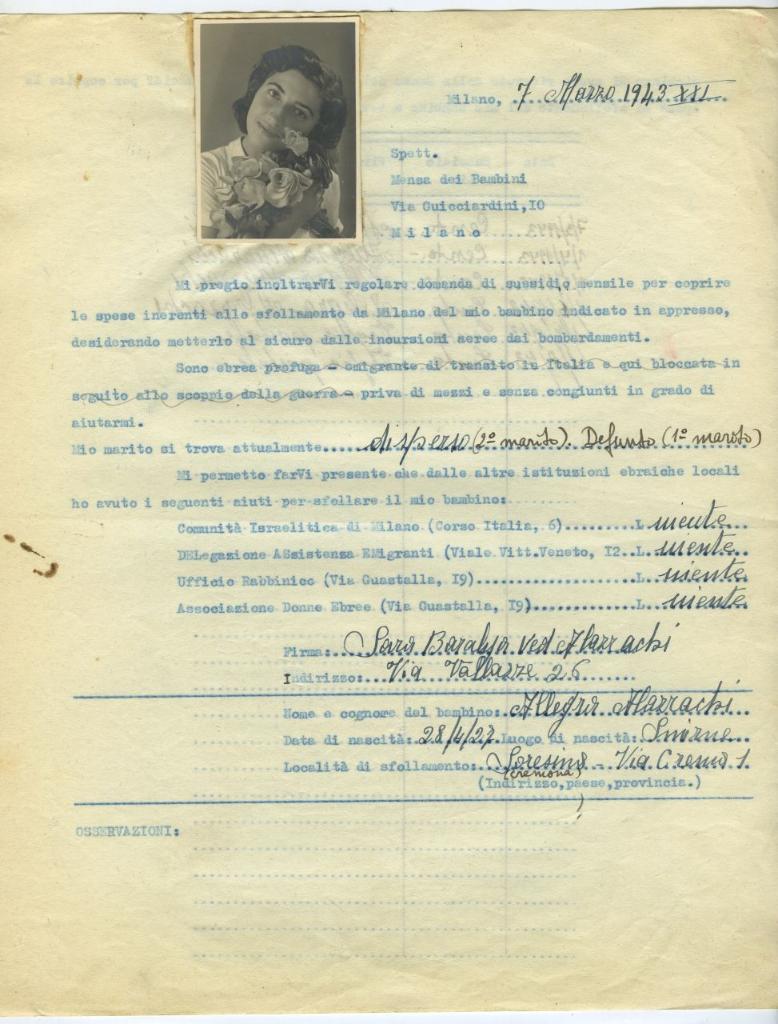 Milano, 7 Marzo 1943 XXI
Spett.
Mensa dei Bambini
Via Guicciardini,10
Milano
Mi pregio inoltrarVi regolare domanda di sussidio mensile per coprire
le spese inerenti allo sfollamento da Milano del mio bambino indicato in appresso,
desiderando metterlo al sicuro dalle incursioni aeree dai bombardamenti.
Sono ebrea profuga - emigrante di transito in Italia e qui bloccata in
seguito allo scoppio della guerra - priva di mezzi e senza congiunti in grado di
aiutarmi.
Mio marito si trova attualmente disperso (2º marito). Defunto (1º marito)
Mi permetto farVi presente che dalle altre istituzioni ebraiche locali
ho avuto i seguenti aiuti per sfollare il mio bambino:
Comunità Israelitica di Milano (Corso Italia, 6) L. niente
DELegazione ASsistenza EMigranti (Viale Vitt.Veneto, 12 L. niente
Ufficio Rabbinico (Via Guastalla, 19) L. niente
Associazione Donne Ebree (Via Guastalla, 19) L. niente
Firma: Sara ved
Indirizzo: Via Vallazze 26
Nome e cognome del bambino: Allegra
Data di nascità: 28/4/27 Luogo di nascità: Smirne
Località di sfollamento: Soresina - Via Crema 1
(Cremona)
(Indirizzo,paese,provincia.)
OSSERVAZIONI: